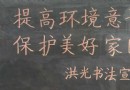 提高环境意
保护美好家
洪光书法宣